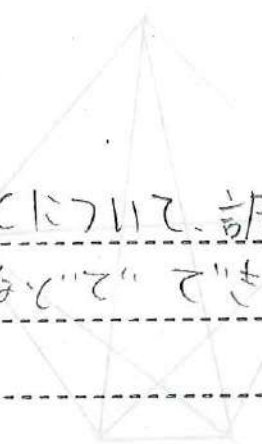 について、調
などででき